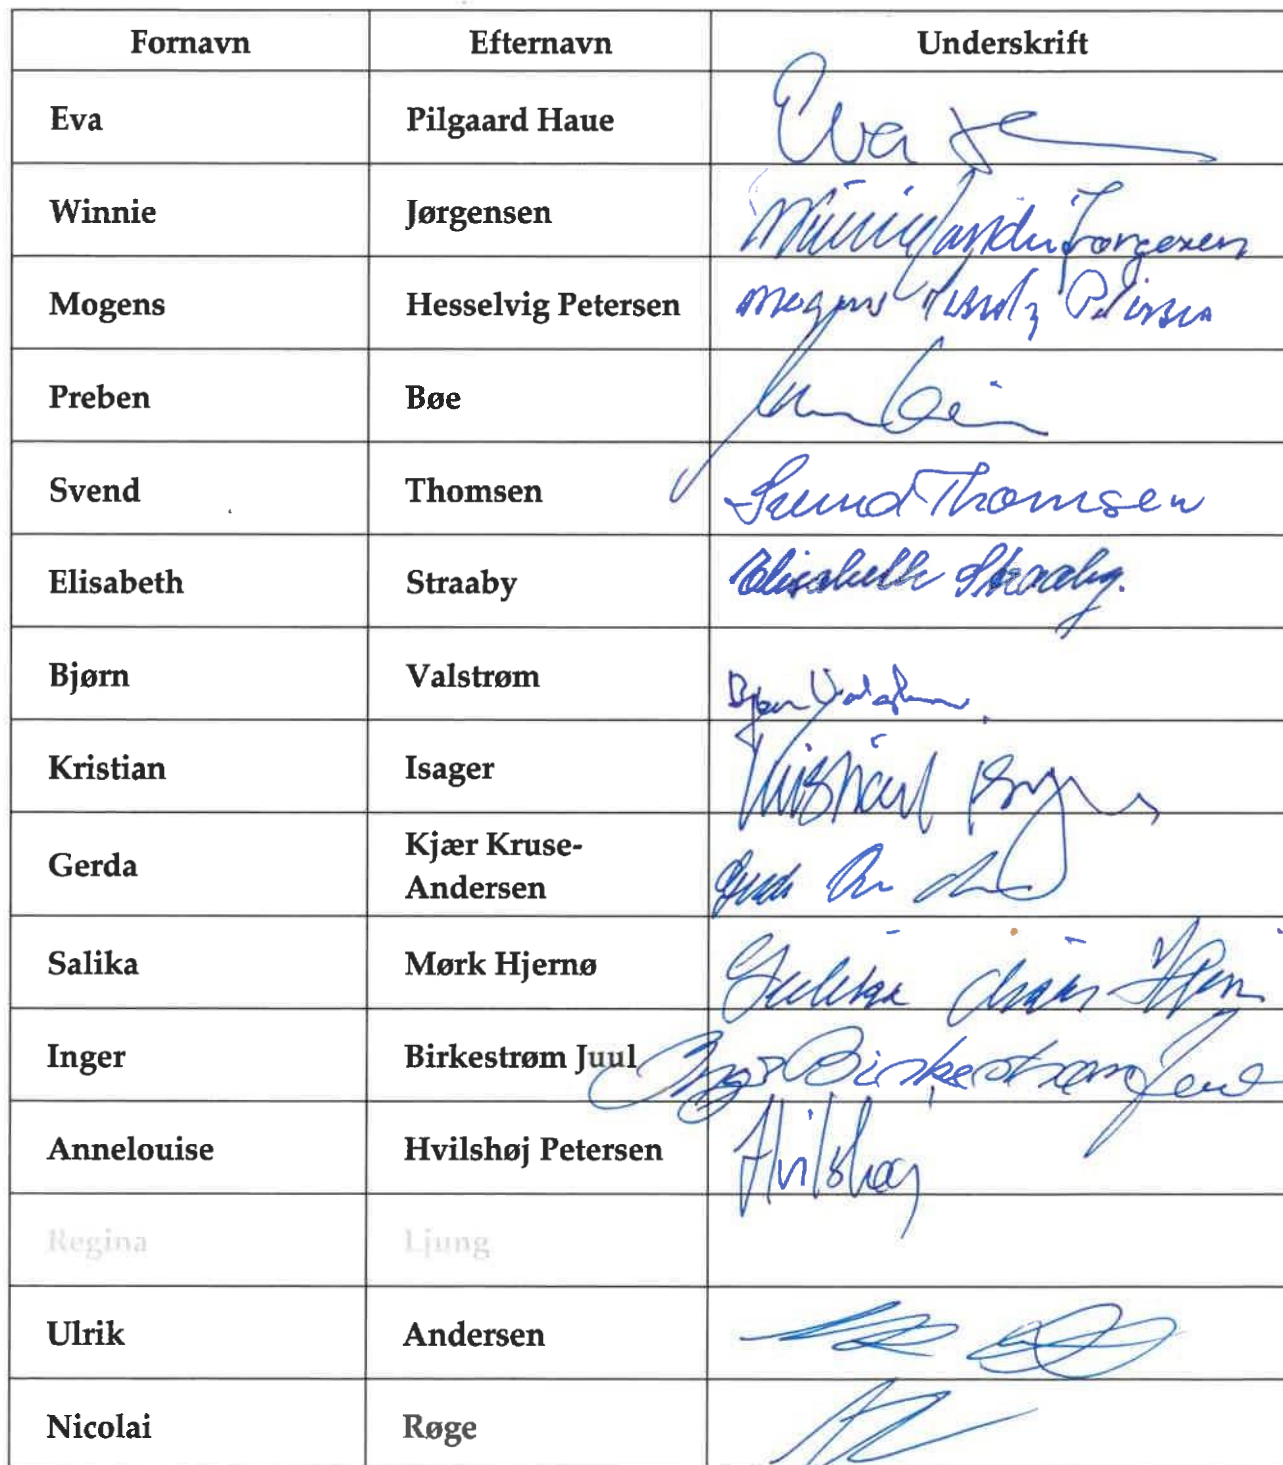 Fornavn Efternavn Underskrift
Eva Pilgaard Haue Eva
Winnie Jørgensen Winnie Jørgensen
Mogens Hesselvig Petersen Mogens Petersen
Preben Bøe
Svend Thomsen Svend Thomsen
Elisabeth Straaby Elisabeth Straaby.
Bjørn Valstrøm Bjørn Valstrøm.
Kristian Isager Kristian Isager
Gerda Kjær Kruse-
Andersen
Salika Mørk Hjernø Salika
Inger Birkestrøm Juul Inger Birkestrøm Juul
Annelouise Hvilshøj Petersen Hvilshøj
Regina Ljung
Ulrik Andersen
Nicolai Røge